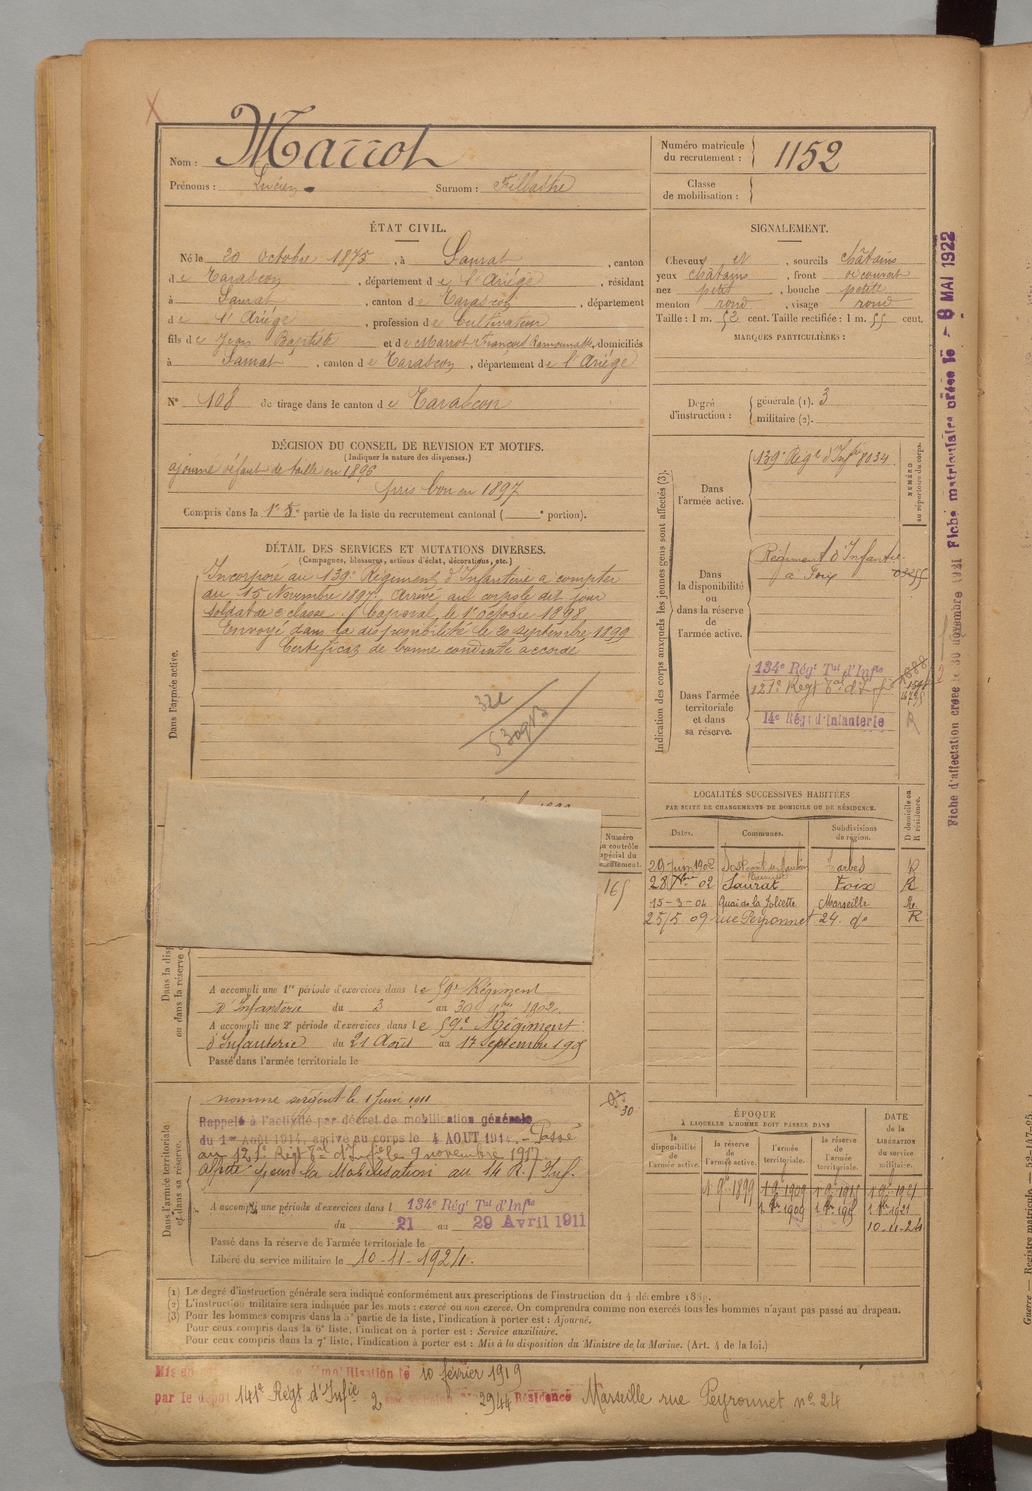 Nom : Marrot
Prénoms : Lucien Surnom : Fillastre
Numéro matricule du recrutement : 1152
Classe de mobilisation :
ÉTAT CIVIL.
Né le 20 Octobre 1875, à Saurat, canton
de Tarascon, département de l'Ariège, résidant
à Saurat, canton de Tarascon, département
de l'Ariège, profession de Cultivateur
fils de Jean Baptiste et de Marrot, domiciliés
à Saurat, canton de Tarascon, département de l'Ariège
N° 108 de tirage dans le canton de Tarascon
SIGNALEMENT.
Cheveux et, sourcils châtains
yeux châtains, front découvert
nez petit, bouche petite
menton rond, visage rond
Taille : 1 m. 52 cent. Taille rectifiée : 1 m. 55 cent.
MARQUES PARTICULIÈRES :
Degré d'instruction : générale (1). 3
militaire (2).
DÉCISION DU CONSEIL DE REVISION ET MOTIFS.
(Indiquer la nature des dispenses.)
ajourné défaut de taille en 1896
pris bon en 1897
Compris dans la 1e partie de la liste du recrutement cantonal ( e portion).
DÉTAIL DES SERVICES ET MUTATIONS DIVERSES.
(Campagnes, blessures, actions d'éclat, décorations, etc.)
Dans l'armée active.
Incorporé au 139e Régiment d'Infanterie à compter
du 15 Novembre 1897. Arrivé au corps le dit jour
soldat de 2e classe. Caporal le 1er octobre 1898
Envoyé dans la disponibilité le 20 septembre 1899
Certificat de bonne conduite accordé
Indication des corps auxquels les jeunes gens sont affectés (3).
NUMÉRO au répertoire du corps.
Dans l'armée active.
139e Régt d'Infie 8034
Dans la disponibilité ou dans la réserve de l'armée active.
Régiment d'Infanterie
à Foix
Dans l'armée territoriale et dans sa réserve.
134e Régt Tal d'Infie
121e Régt Tal d'Infie
14e Régt d'Infanterie
R
LOCALITÉS SUCCESSIVES HABITÉES
PAR SUITE DE CHANGEMENTS DE DOMICILE OU DE RÉSIDENCE.
Dates. Communes. Subdivisions de région. D domicile ou R résidence.
29 Juin 1902 Tarbes R
28 Xbre 02 Saurat Foix R
15-3-04 Quai de la Joliette Marseille R.
25/5 09 rue Peyronnet 24. do R
Numéro au contrôle spécial du recrutement.
165
A accompli une 1re période d'exercices dans le 59e Régiment
d'Infanterie du 3 au 30 1902.
A accompli une 2e période d'exercices dans le 59e Régiment
d'Infanterie du 21 Août au 17 Septembre 1905
Passé dans l'armée territoriale le
Dans l'armée territoriale et dans sa réserve.
nommé sergent le 1 juin 1911
Rappelé à l'activité par décret de mobilisation générale
du 1er Août 1914, arrivé au corps le 4 AOUT 1914. - Passé
au 121e Régt Tal d'Infie le 9 novembre 1917
Affecté pour la Mobilisation au 14 R. Inf.
A accompli une période d'exercices dans l 134e Régt Tal d'Infie
du 21 au 29 Avril 1911
Passé dans la réserve de l'armée territoriale le
Libéré du service militaire le 10-11-1924.
ÉPOQUE
A LAQUELLE L'HOMME DOIT PASSER DANS
la disponibilité de l'armée active. la réserve de l'armée active. l'armée territoriale. la réserve de l'armée territoriale.
DATE de la LIBÉRATION du service militaire.
1 9bre 1899 1 9bre 1909 1 9bre 1915 1 9bre 1921
1 8bre 1909 1 8bre 1915 1 8bre 1921
10-11-24
(1) Le degré d'instruction générale sera indiqué conformément aux prescriptions de l'instruction du 4 décembre 1889.
(2) L'instruction militaire sera indiquée par les mots : exercé ou non exercé. On comprendra comme non exercés tous les hommes n'ayant pas passé au drapeau.
(3) Pour les hommes compris dans la 5e partie de la liste, l'indication à porter est : Ajourné.
Pour ceux compris dans la 6e liste, l'indication à porter est : Service auxiliaire.
Pour ceux compris dans la 7e liste, l'indication à porter est : Mis à la disposition du Ministre de la Marine. (Art. 4 de la loi.)
le 10 février 1919
par le dépôt 141e Régt d'Infie 2 2944 Résidence Marseille rue Peyronnet no 24
Fiche d'affectation créée le 30 décembre 1921 Fiche matriculaire créée le - 8 MAI 1922